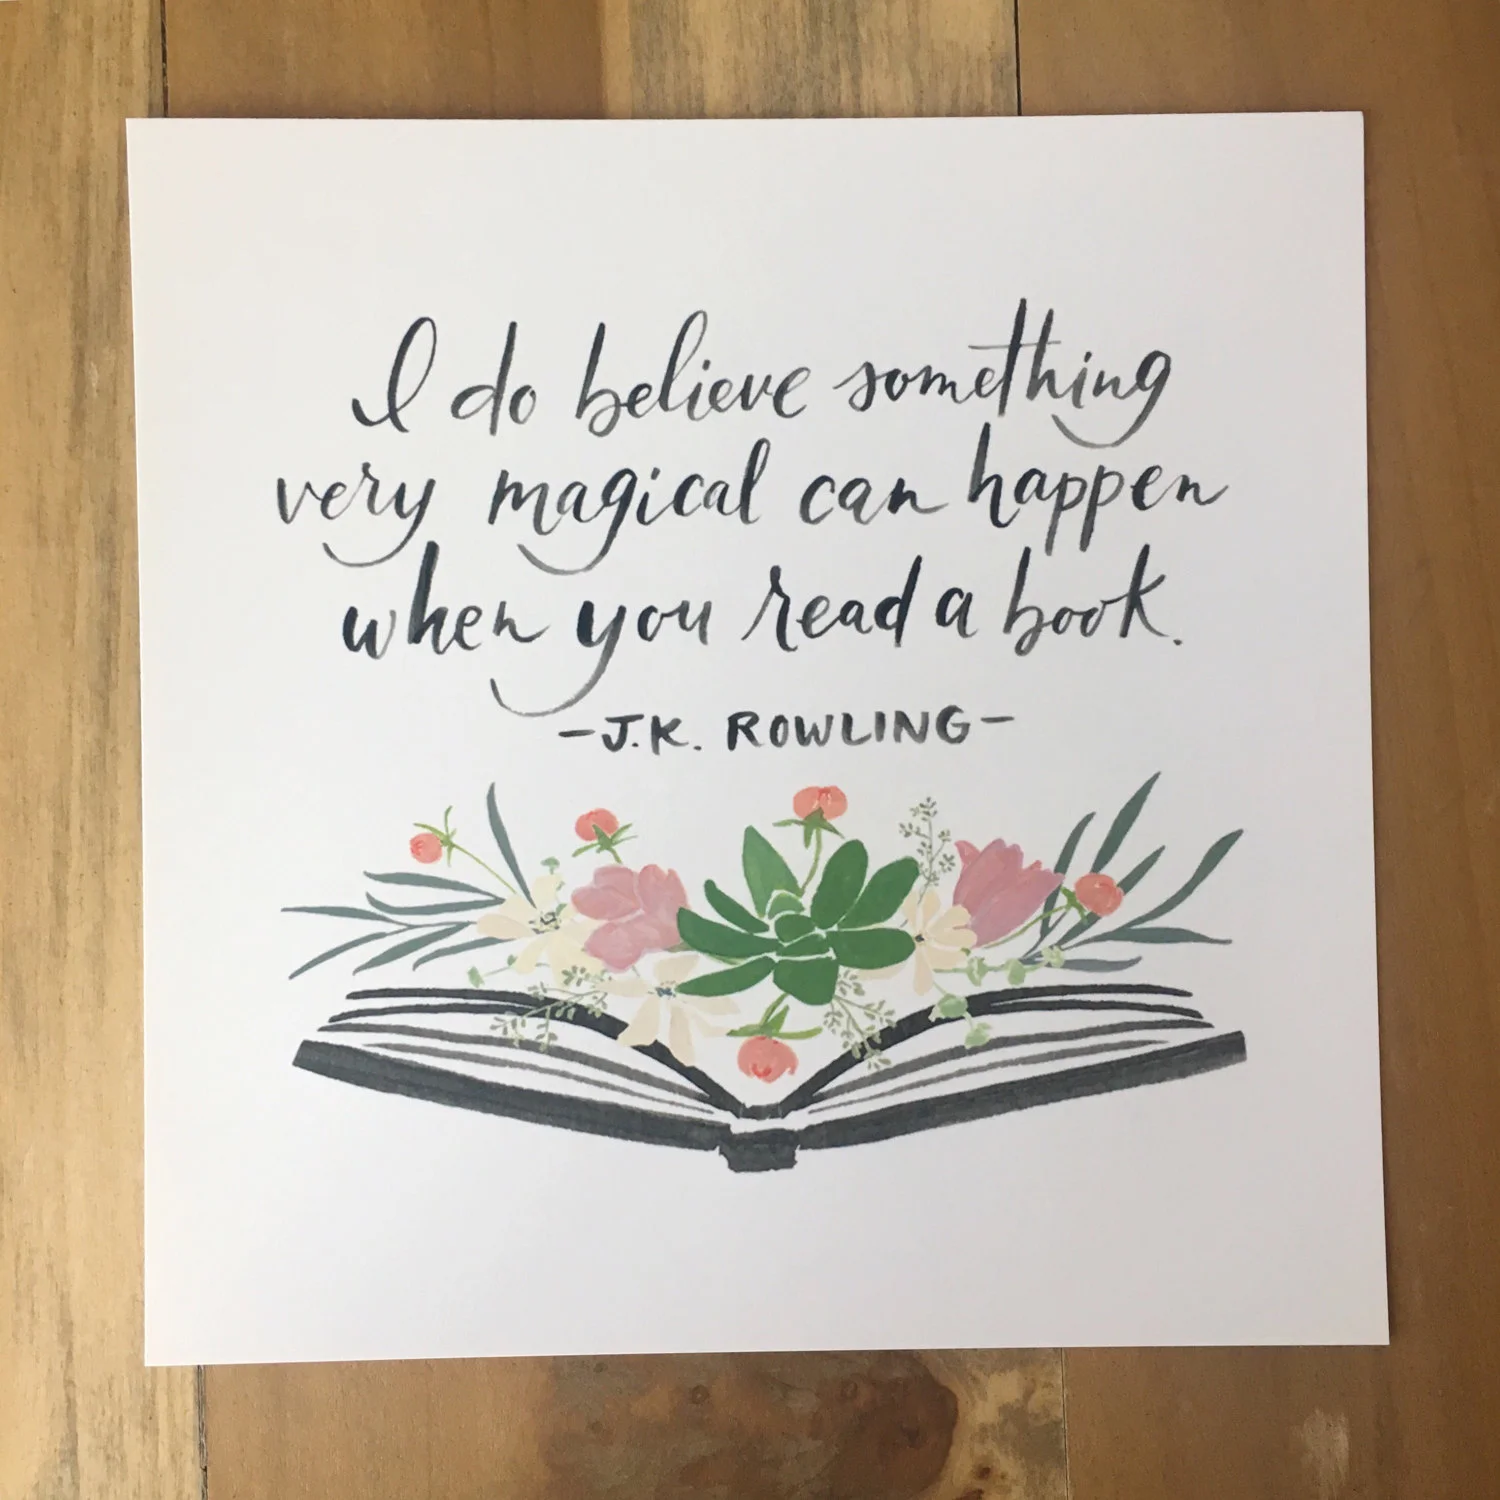 I do believe something
very magical can happen
when you read a book.
-J.K. ROWLING-